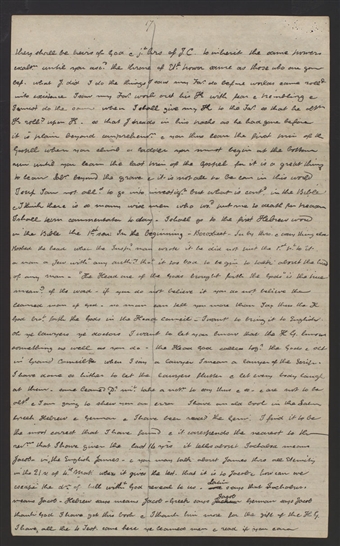 they shall be heirs of God & jt. hrs of J.C. to inherit the same power
exaltn until you asc the throne of Etl power same as those who are gone
bef. what did J. do the things I saw my Far do before worlds came rolld
into existence I saw my Far work out his K with fear & trembling &
I must do the same when I shall give my K to the Far so that he obtns
K rolld upon K. so that J treads in his tracks as he had gone before
it is plain beyond comprehension & you thus learn the first prin of the
Gospel when you climb a ladder you must begin at the bottom
run until you learn the last prin of the Gospel for it is a great thing
to learn Saln beyond the grave & it is not all to be com in this world
I sup I am not alld to go into investign but what is contd in the Bible
& I think there is a many wise men who wod put me to death for treason
I shall turn commentator to day. I shall go to the first Hebrew word
in the Bible the 1st sen In the beginning - Berosheit - In by thro & every thing else
Rosheit the head when the Inspd man wrote it he did not put the 1st pt to it
a man a Jew witht any authy. thot it too bad to begin to talk about the head
of any man. "The Head one of the Gods brought forth the Gods" is the true
meaning of the word - if you do not believe it you do not believe the
learned man of God - no man can tell you more than I do thus the H
God brot forth the Gods in the Head Council - I want to bring it to English
Oh ye lawyers ye doctors I want to let you know that the H.G. knows
something as well as you do - the Head God called togr the Gods & sat
in Grand Council &c when I say a lawyer I mean a lawyer of the Scrip.
I have done so hither to let the lawyers flutter & let every body laugh
at them. some learned Dr. mit take a notn to say thus & so - & are not to be
altd & I am going to show you an error I have an old book in the Latin
Greek Hebrew & German & I have been readg the Germ: I find it to be
the most correct that I have found & it corresponds the nearest to the
revns that I have given the last 16 yrs it tells about Jachobus means
Jacob - in the English James - & you may talk about James thro all Eternity
in the 21 v. of 4th Mat: when it gives the test. that it is to Jacob & how can we
escape the dn of hell witht God reveal to us. Latin says that Jachobus
means Jacob - Hebrew says means Jacob - Greek says Jacob German says Jacob
thank God I have got this book & I thank him more for the gift of the H.G.
I have all the 4 Test. come here ye learned men & read if you can